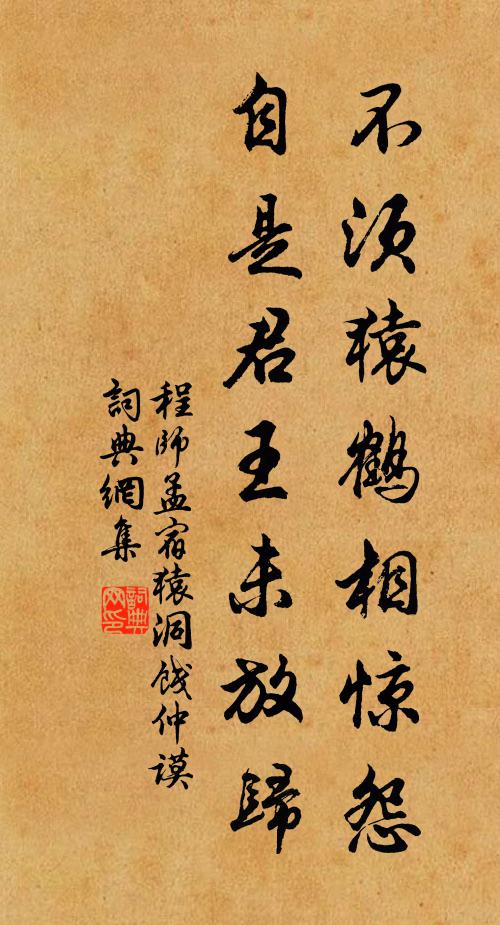 不须猿鹤相惊怨
自是君王未放歸
程師孟宿猿洞餞仲謨
詞典網集
詞典网印